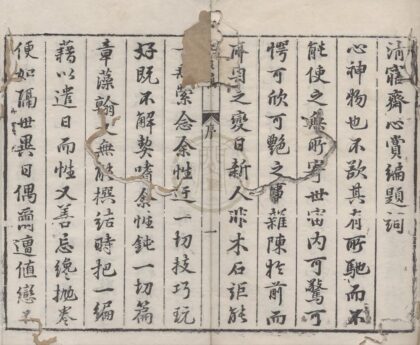 清寤齋心賞編題詞
心神物也不欲其有所馳而不
能使之無所寧世宙內可驚可
愕可欣可艷之事雜陳於前而
之變日新人非木石詎能
序 一
縈念余性迂一切技巧玩
好既不解契嗜余性鈍一切篇
章藻翰又無能撰結時把一編
藉以遣日而性又善忘纔拋卷
便如隔世異日偶爾遭值戀